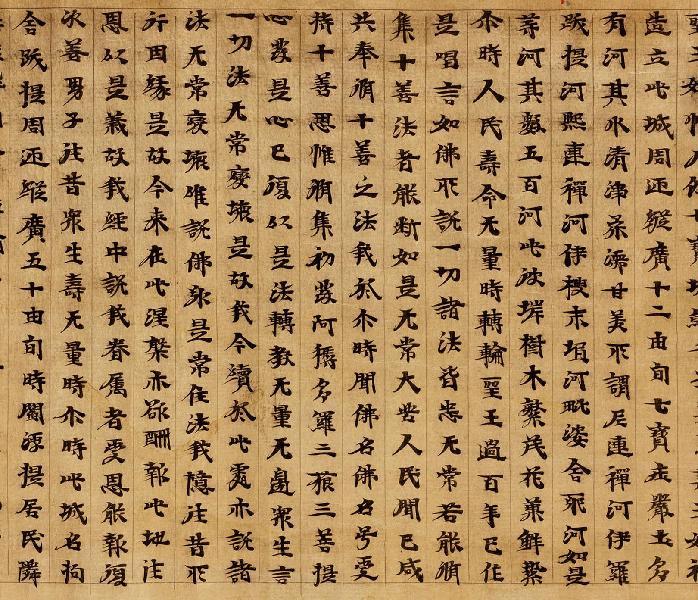 造立此城周迊縱廣十二由旬七寶庄嚴土多
有河其水清淨柔濡甘美所謂尼連禪河伊羅
跋提河熙連禪河伊搜末堆河毗婆舍那河如是
等河其數五百河此彼岸樹木繁茂花菓鮮潔
尒時人民壽命无量時轉輪聖王過百年已作
是唱言如佛所說一切諸法皆悉无常若能脩
集十善法者能斷如是无常大苦人民聞已咸
共奉脩十善之法我於尒時聞佛名佛名号受
持十善思惟脩集初發阿耨多羅三藐三菩提
心發是心已復以是法轉教无量无邊衆生言
一切法无常變壞是故我今續於此處亦說諸
法无常變壞唯說佛身是常住法我憶往昔所
行因緣是故今來在此涅槃亦欲酬報此地往
恩以是義故我經中說我眷屬者受恩能報復
次善男子往昔衆生壽无量時尒時此城名拘
舍跋提周迊縱廣五十由旬時閻浮提居民隣